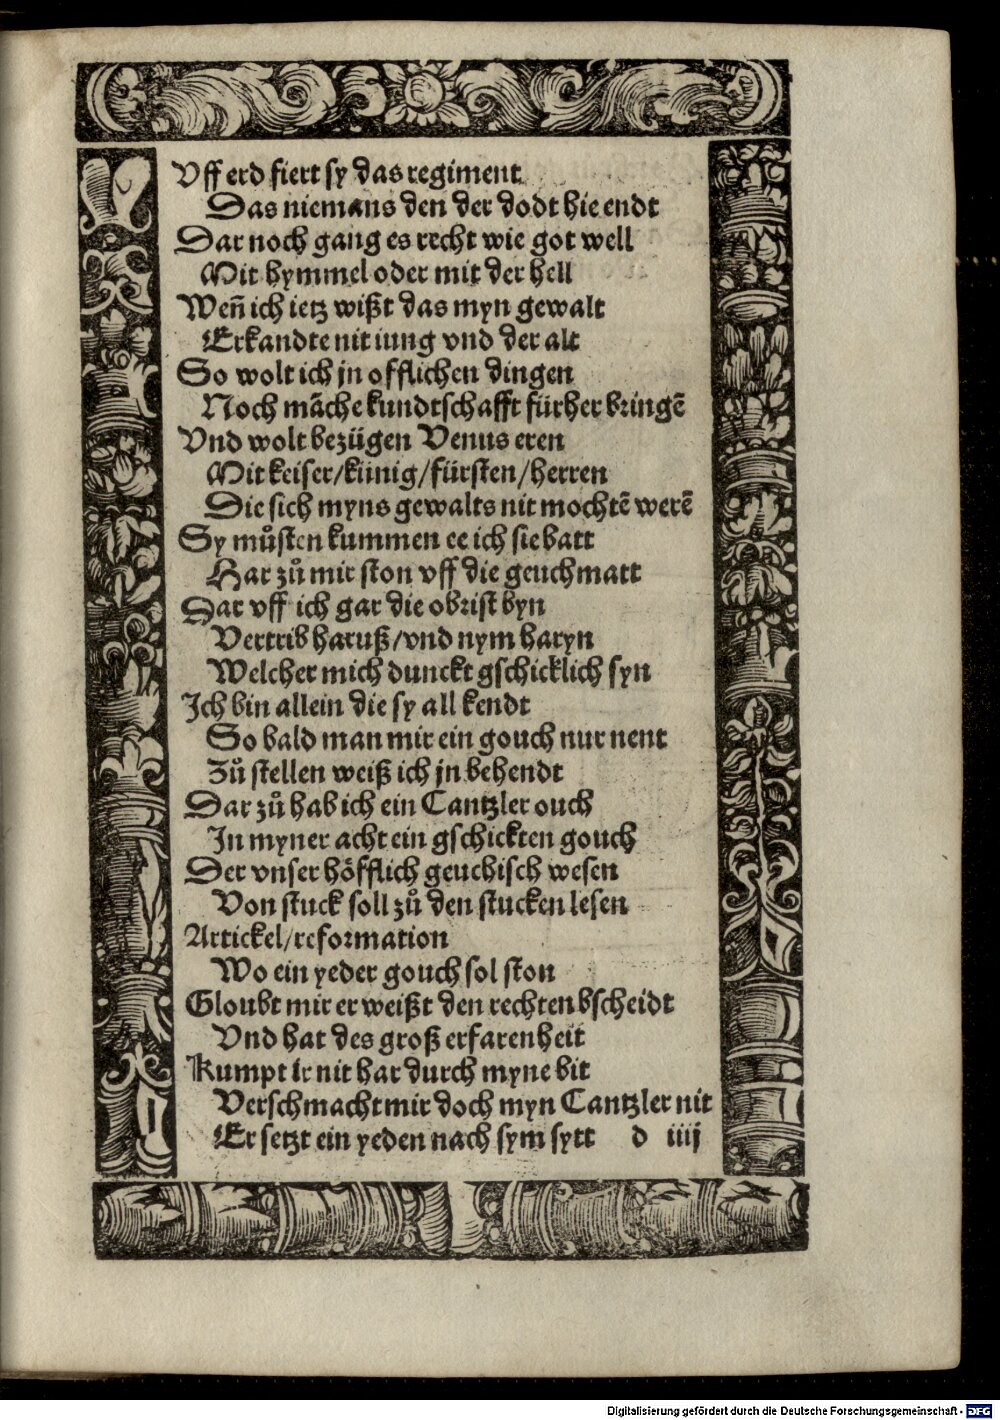 Vff erd fiert sy das regiment
Das niemans den der dodt hie endt
Dar noch gang es recht wie got well
Mit hymmel oder mit der hell
Weñ ich ietz wißt das myn gewalt
Erkandte nit iung vnd der alt
So wolt ich jn offlichen dingen
Noch mãche kundtschafft fürher bringẽ
Vnd wolt bezügen Venus eren
Mit keiser/künig/fürsten/herren
Die sich myns gewalts nit mochtẽ werẽ
Sy můsten kummen ee ich sie batt
Har zů mir ston vff die geuchmatt
Dar vff ich gar die obrist byn
Vertrib haruß/vnd nym haryn
Welcher mich dunckt gschicklich syn
Ich bin allein die sy all kendt
So bald man mir ein gouch nur nent
Zů stellen weiß ich jn behendt
Dar zů hab ich ein Cantzler ouch
In myner acht ein gschickten gouch
Der vnser höfflich geuchisch wesen
Von stuck soll zů den stucken lesen
Artickel/reformation
Wo ein yeder gouch sol ston
Gloubt mir er weißt den rechten bscheidt
Vnd hat des groß erfarenheit
Kumpt ir nit har durch myne bit
Verschmacht mir doch myn Cantzler nit
Er setzt ein yeden nach sym sytt d iiij
Digitalisierung gefördert durch die Deutsche Forschungsgemeinschaft - DFG